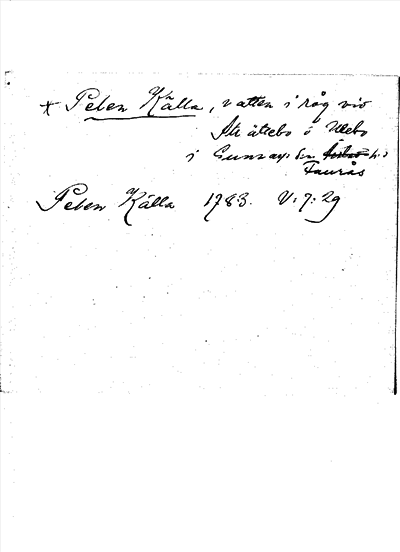 * Peben Källa, vatten i råg vid
Stråkebo o Ulebo
i Gunnarp sn h.d
Faurås
Peben Källa 1783. V:7:29